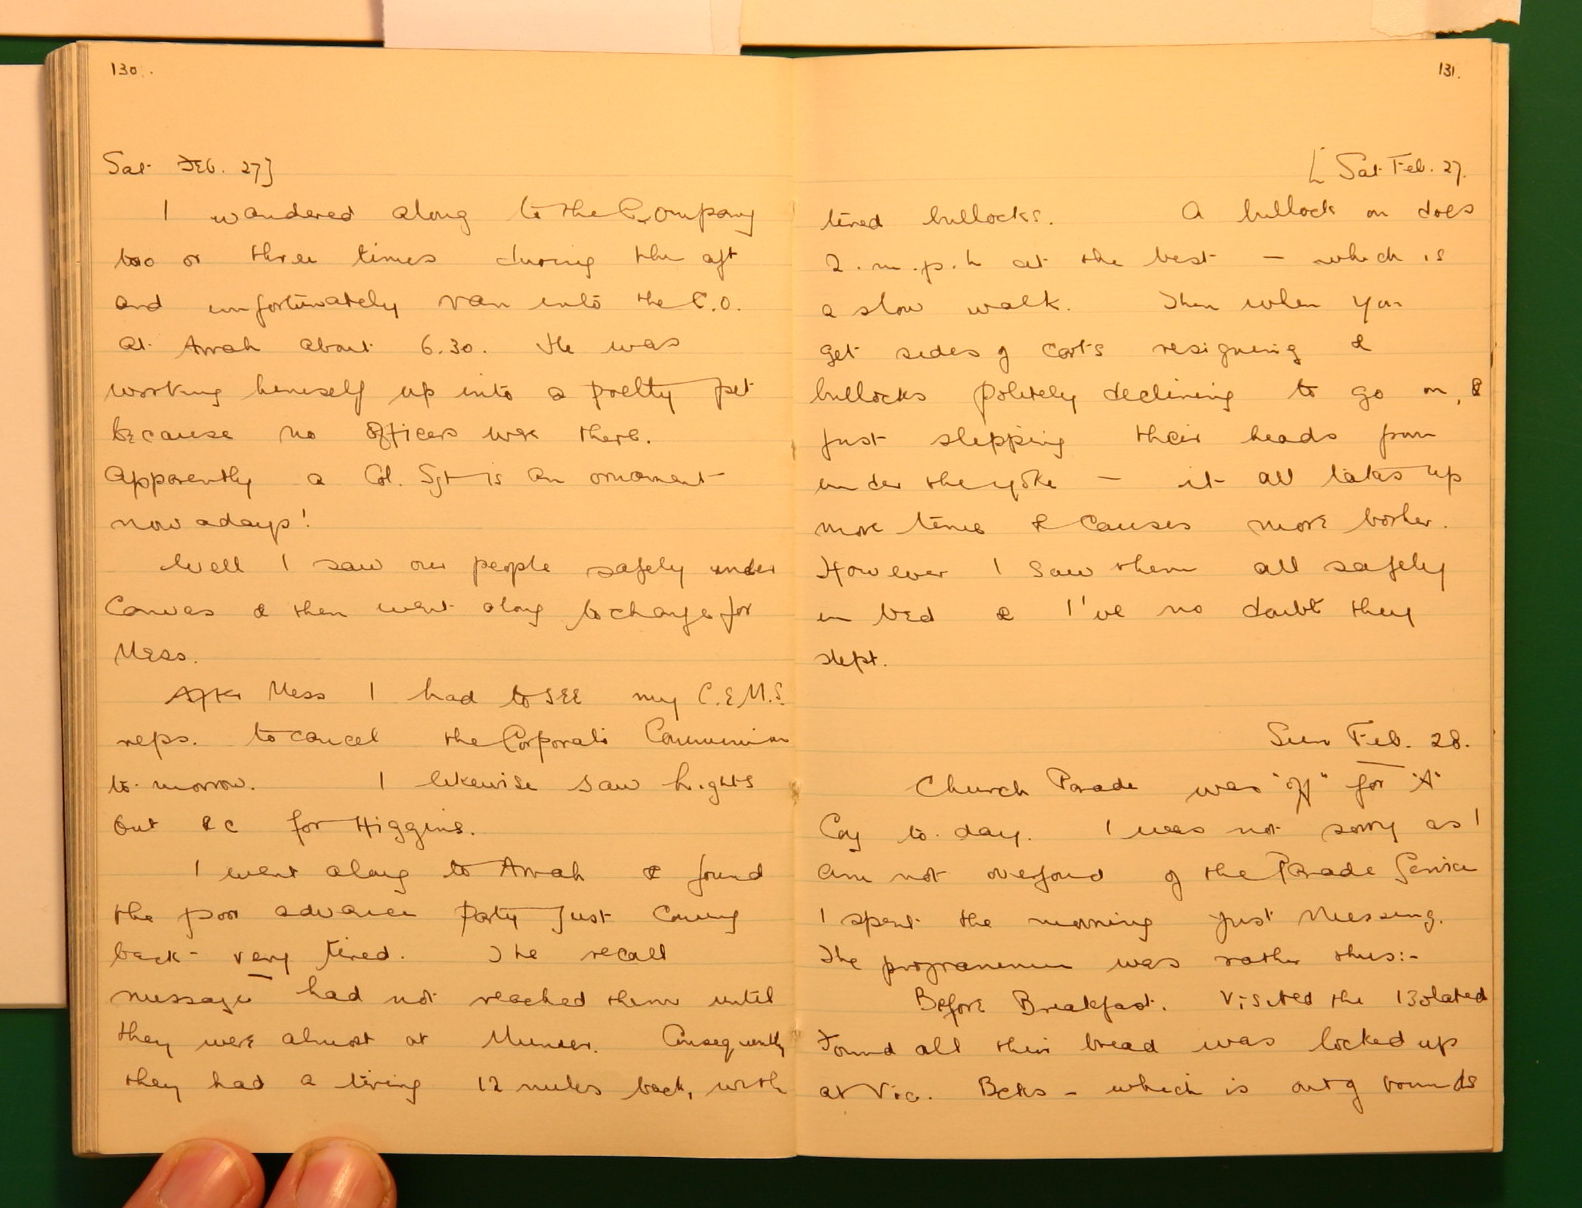 130.
Sat Feb. 27]
I wandered along to the Company
two or three times during the aft
and unfortunately ran into the C.O.
at Arrah about 6.30. He was
working himself up into a pretty pet
because no officers were there.
Apparently a Col. Sgt is an ornament
nowadays!
Well I saw our people safely under
Canvas & then went along to change for
Mess.
After Mess I had to see my C.E.M.S.
reps. to cancel the Corporate Communion
to-morrow. I likewise saw lights
out &c for Higgins.
I went along to Arrah & found
the poor advance party just coming
back - very tired. The recall
message had not reached them until
they were almost at Muneer. Consequently
they had a tiring 12 miles back, with
131.
[Sat Feb. 27.
tired bullocks. A bullock on does
2.m.p.h at the best - which is
a slow walk. Then when you
get sides of carts resigning &
bullocks politely declining to go on, &
just slipping their heads from
under the yoke - it all takes up
more time & causes more bother.
However I saw them all safely
in bed & I've no doubt they
slept.
Sun Feb. 28.
Church Parade was "off" for "A"
Coy to-day. I was not sorry as I
am not overfond of the Parade Service
I spent the morning just Messing.
The programme was rather thus:-
Before Breakfast. Visited the Isolated
Found all their bread was locked up
at Vic. Bcks - which is out of bounds